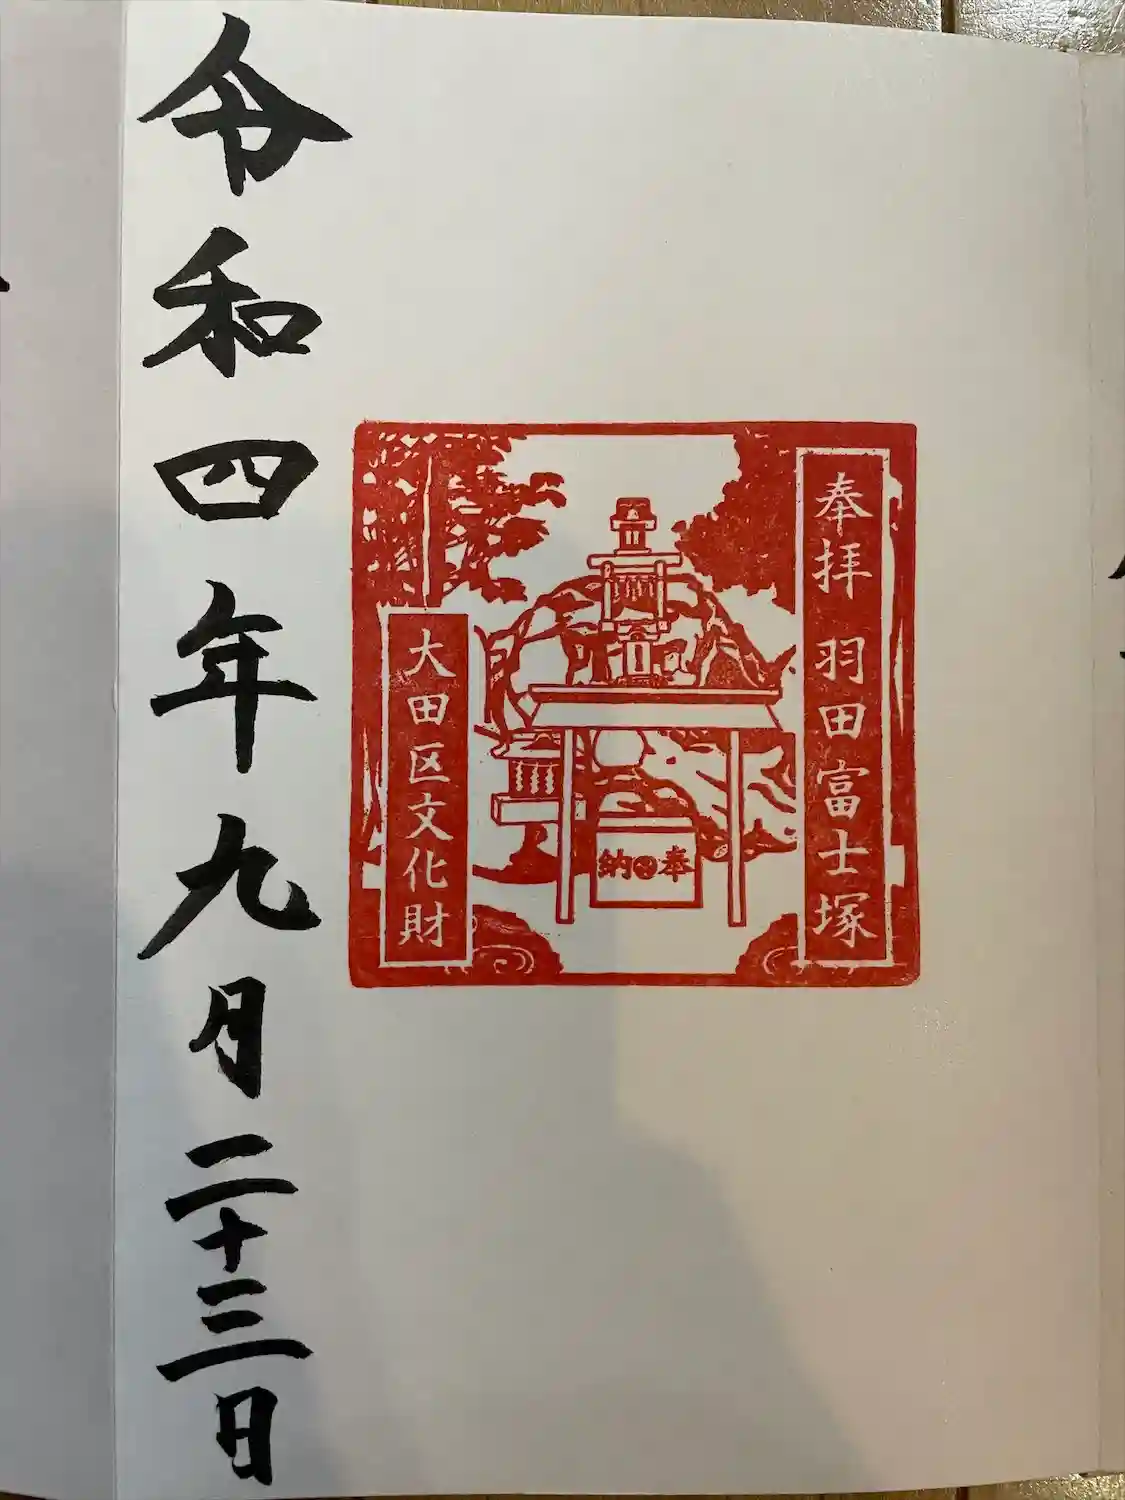 奉拝 羽田富士塚
奉納
大田区文化財
令和四年九月二十三日